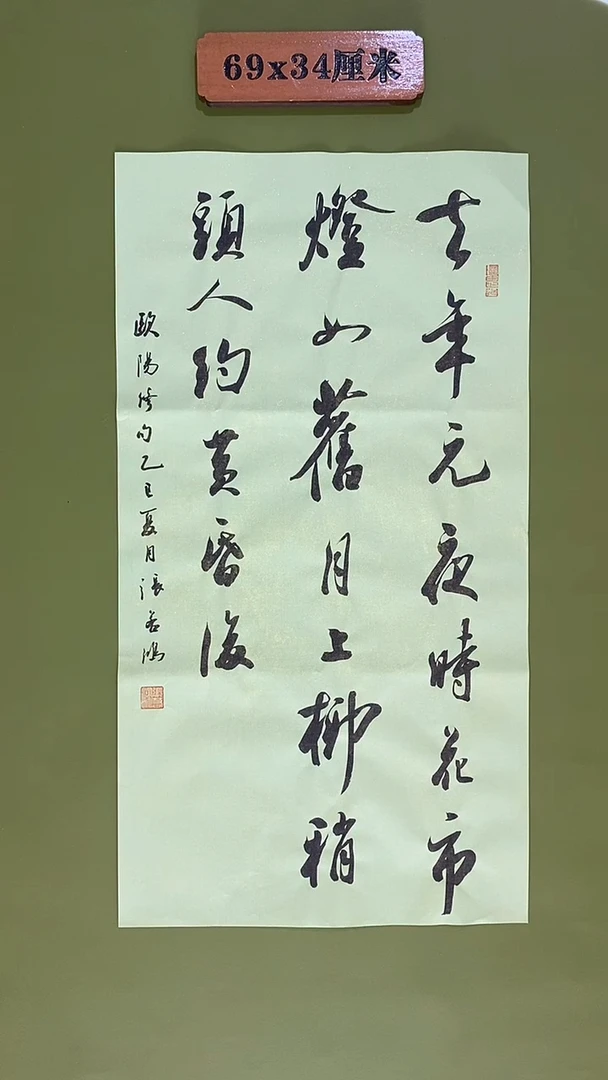 69x34厘米
去年元夜時花市
燈如舊月上柳稍
頭人約黄昏後
歐陽修句乙巳夏月張若鴻